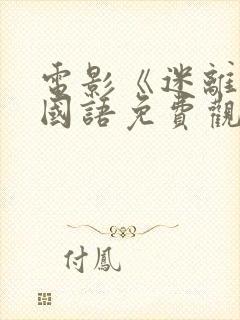 電影《迷離
國語免費觀
付鳳